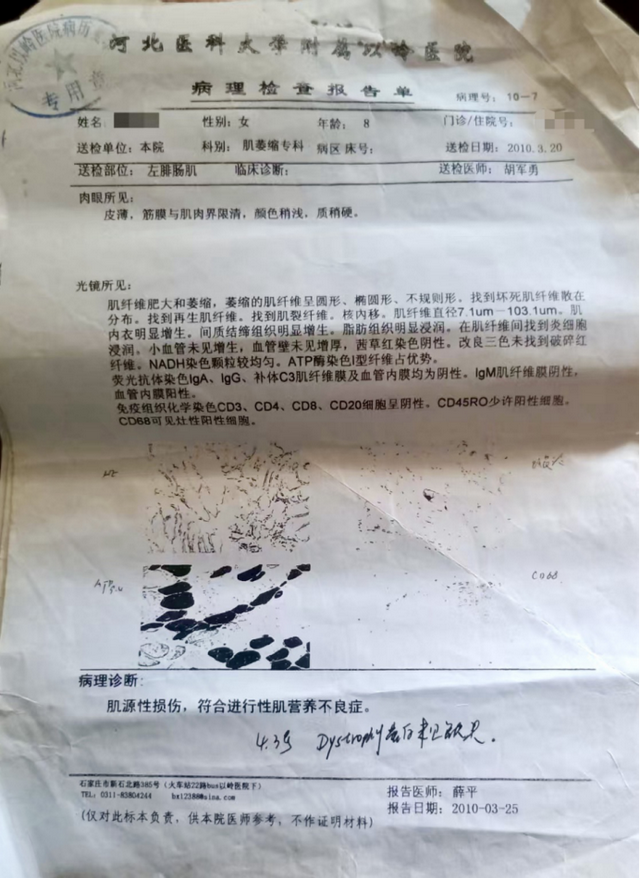 河北以岭医院病历
专用章
河北医科大学附属以岭医院
病理检查报告单
病理号: 10-7
姓名: 性别: 女 年龄: 8 门诊/住院号:
送检单位: 本院 科别: 肌萎缩专科 病区 床号: 送检日期: 2010.3.20
送检部位: 左腓肠肌 临床诊断: 送检医师: 胡军勇
肉眼所见:
皮薄，筋膜与肌肉界限清，颜色稍浅，质稍硬。
光镜所见:
肌纤维肥大和萎缩，萎缩的肌纤维呈圆形、椭圆形、不规则形。找到坏死肌纤维散在
分布。找到再生肌纤维。找到肌裂纤维。核内移。肌纤维直径7.1um－103.1um。肌
内衣明显增生。间质结缔组织明显增生。脂肪组织明显浸润。在肌纤维间找到炎细胞
浸润。小血管未见增生，血管壁未见增厚，茜草红染色阴性。改良三色未找到破碎红
纤维。NADH染色颗粒较均匀。ATP酶染色I型纤维占优势。
荧光抗体染色IgA、IgG、补体C3肌纤维膜及血管内膜均为阴性。IgM肌纤维膜阴性，
血管内膜阳性。
免疫组织化学染色CD3、CD4、CD8、CD20细胞呈阴性。CD45RO少许阳性细胞。
CD68可见灶性阳性细胞。
HE
CD68
病理诊断:
肌源性损伤，符合进行性肌营养不良症。
4.3号 Dystrophy蛋白
石家庄市新石北路385号（火车站22路bus以岭医院下）
TEL: 0311-83804244 hx12388@sina.com
(仅对此标本负责，供本院医师参考，不作证明材料)
报告医师: 薛平
报告日期: 2010-03-25